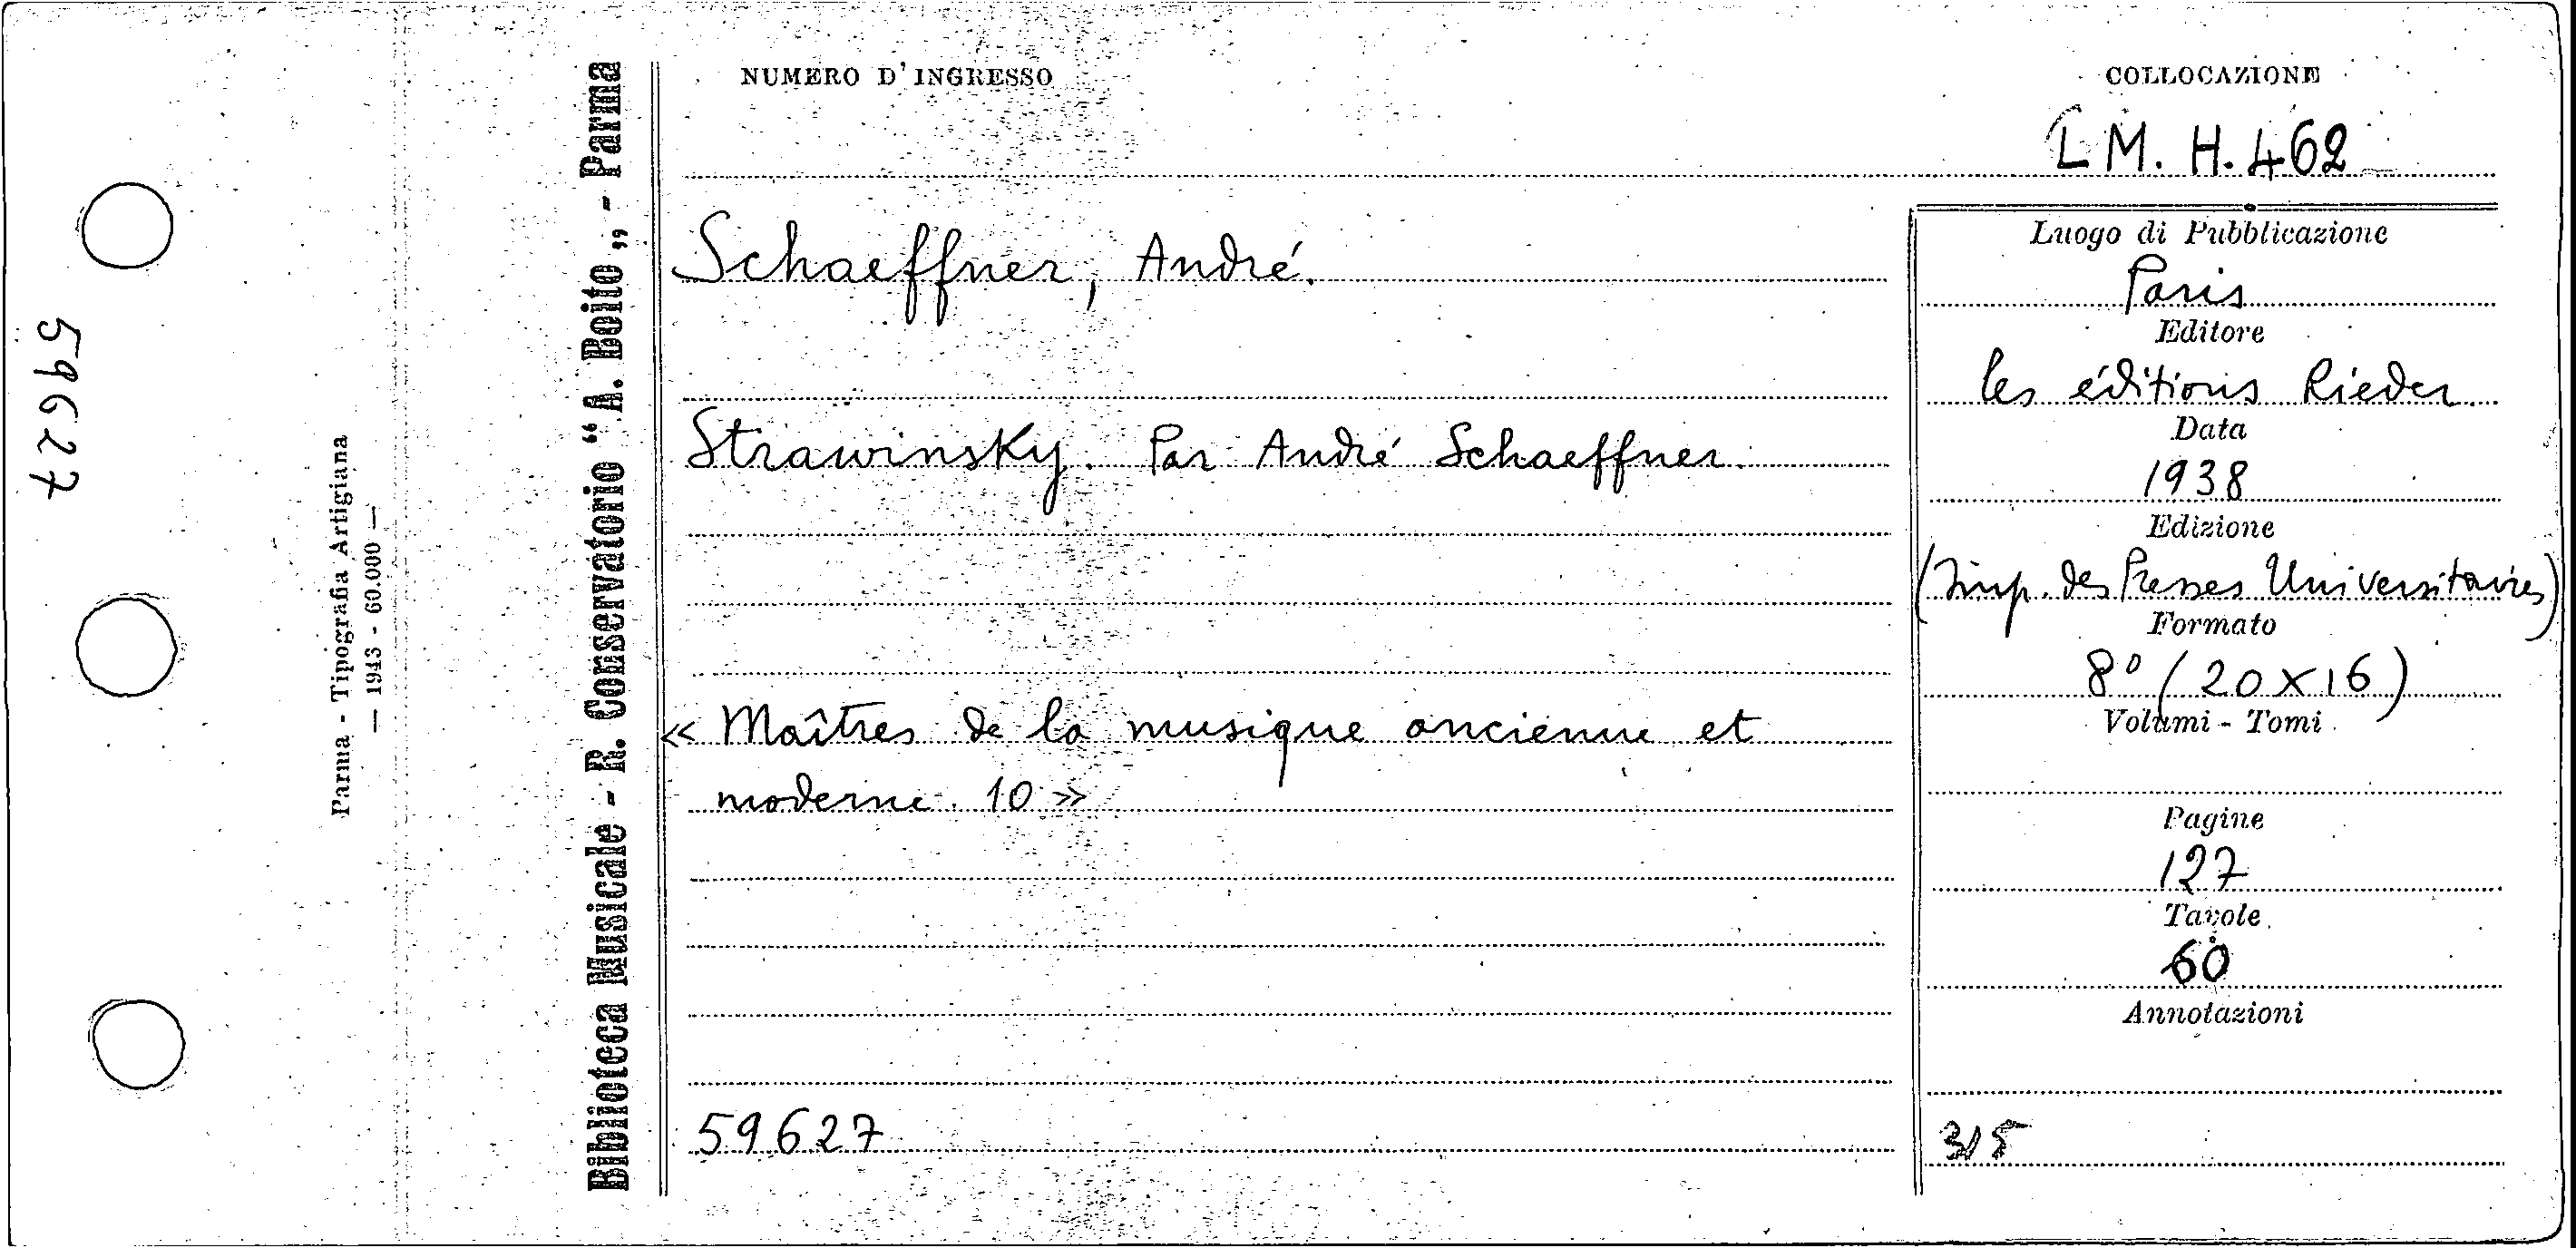 59627
Parma - Tipografia Artigiana
— 1943 - 60.000 —
Biblioteca Musicale - R. Conservatorio “A. Boito„ - Parma
NUMERO D'INGRESSO
COLLOCAZIONE
L M. H. 462
Schaeffner, André.
Strawinsky. Par André Schaeffner.
« Maîtres de la musique ancienne et
moderne. 10 »
59627
Luogo di Pubblicazione
Paris
Editore
les éditions Rieder.
Data
1938
Edizione
(Imp. des Presses Universitaires)
Formato
8º (20 × 16)
Volumi - Tomi
Pagine
127
Tavole
60
Annotazioni
315